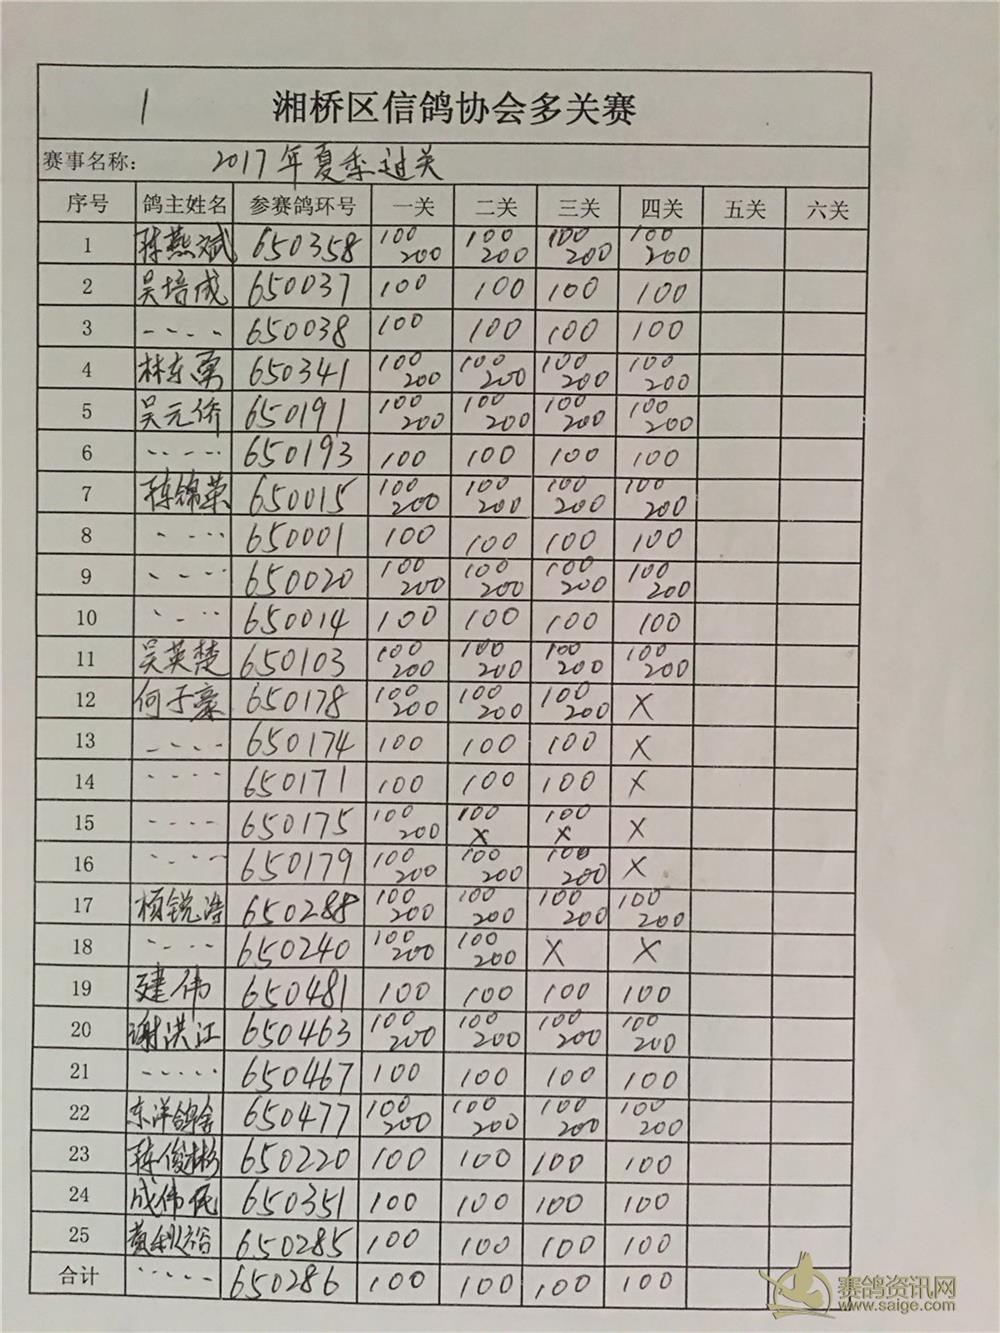 1 湘桥区信鸽协会多关赛
赛事名称: 2017年夏季过关
序号 鸽主姓名 参赛鸽环号 一关 二关 三关 四关 五关 六关
1 陈燕斌 650358 100 200 100 200 100 200 100 200
2 吴培成 650037 100 100 100 100
3 ---- 650038 100 100 100 100
4 林东勇 650341 100 200 100 200 100 200 100 200
5 吴元侨 650191 100 200 100 200 100 200 100 200
6 ---- 650193 100 100 100 100
7 陈锦荣 650015 100 200 100 200 100 200 100 200
8 ---- 650001 100 100 100 100
9 ---- 650020 100 200 100 200 100 200 100 200
10 ---- 650014 100 100 100 100
11 吴英楚 650103 100 200 100 200 100 200 100 200
12 何子豪 650178 100 200 100 200 100 200 X
13 ---- 650174 100 100 100 X
14 ---- 650171 100 100 100 X
15 ---- 650175 100 200 100 X 100 X X
16 ---- 650179 100 200 100 200 100 200 X
17 杨锐涛 650288 100 200 100 200 100 200 100 200
18 ---- 650240 100 200 100 200 X X
19 建伟 650481 100 100 100 100
20 谢洪江 650463 100 200 100 200 100 200 100 200
21 ----- 650467 100 100 100 100
22 东洋鸽舍 650477 100 200 100 200 100 200 100 200
23 陈俊彬 650220 100 100 100 100
24 成伟民 650351 100 100 100 100
25 黄利裕 650285 100 100 100 100
合计 ----- 650286 100 100 100 100
赛鸽资讯网
www.saige.com